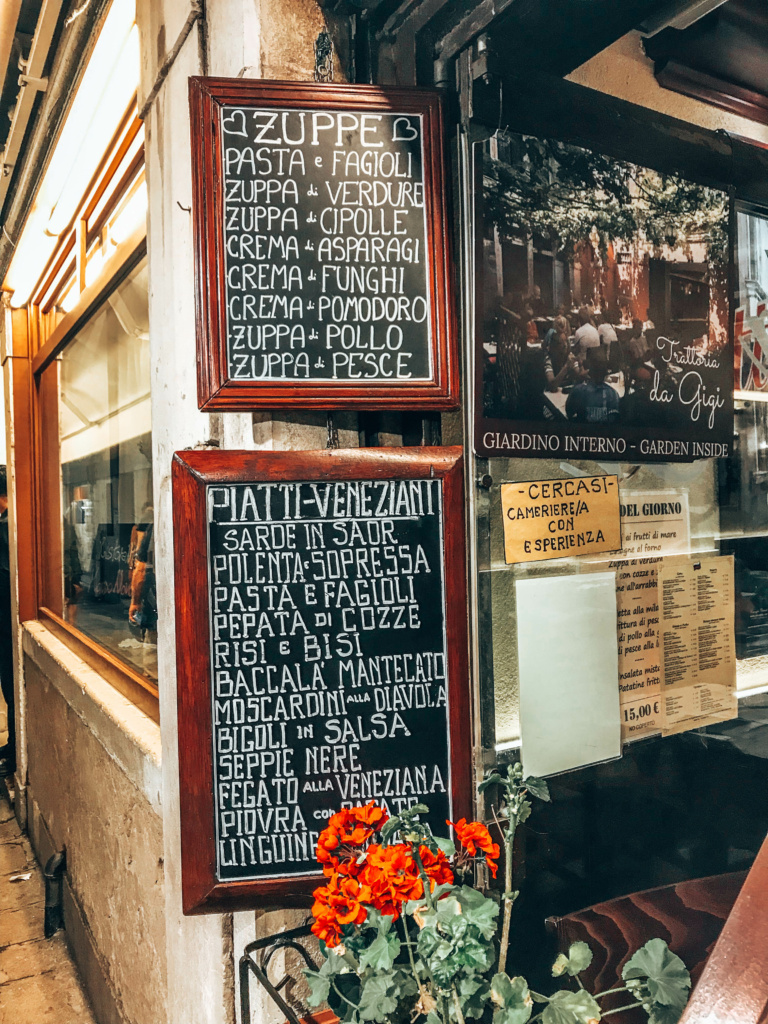 ZUPPE
PASTA e FAGIOLI
ZUPPA di VERDURE
ZUPPA di CIPOLLE
CREMA di ASPARAGI
CREMA di FUNGHI
CREMA di POMODORO
ZUPPA di POLLO
ZUPPA di PESCE
PIATTI-VENEZIANI
SARDE IN SAOR
POLENTA e SOPRESSA
PASTA E FAGIOLI
PEPATA DI COZZE
RISI E BISI
BACCALA' MANTECATO
MOSCARDINI ALLA DIAVOLA
BIGOLI IN SALSA
SEPPIE NERE
FEGATO ALLA VENEZIANA
PIOVRA con
LINGUINE
Trattoria
da Gigi
GIARDINO INTERNO - GARDEN INSIDE
- CERCASI -
CAMBRIERE/A
CON
ESPERIENZA
DEL GIORNO
ai frutti di mare
al forno
Zuppa di verdure
con cozze e
all'arrabbi
alla mila
di pesc
di pollo alla
di pesce alla
nsalata mist
Patatina fritt
15,00 €